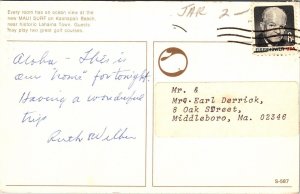 Every room has an ocean view at the
new MAUI SURF on Kaanapali Beach,
near historic Lahaina Town. Guests
may play two great golf courses.
JAR 2-
EISENHOWER USA
Aloha - This is
our "home" for tonight.
Having a wonderful
trip
Ruth Wilbur
Mr. &
Mrs. Earl Derrick,
8 Oak Street,
Middleboro, Ma. 02346
S-587